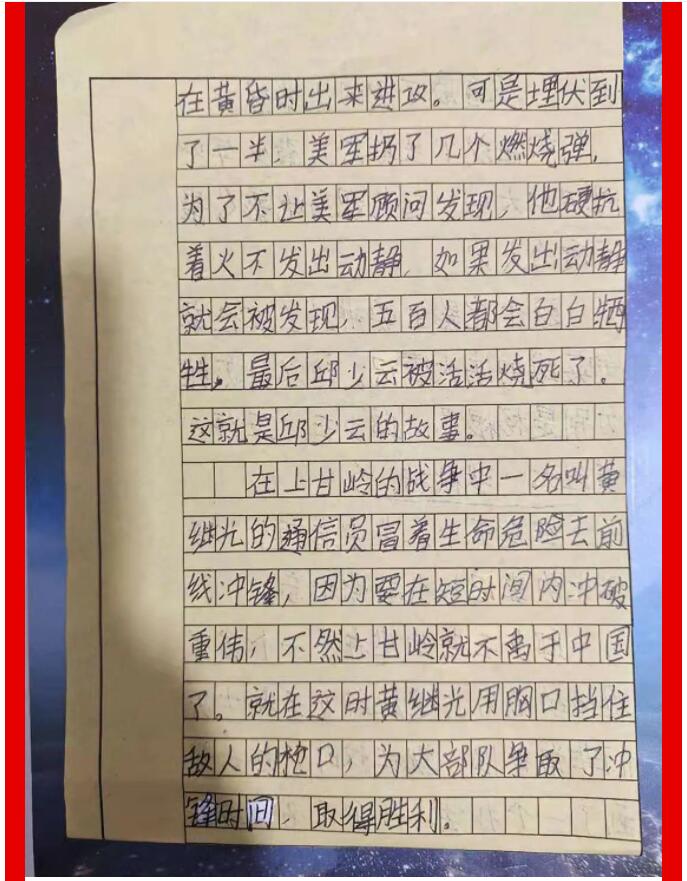 在黄昏时出来进攻。可是埋伏到
了一半，美军扔了几个燃烧弹，
为了不让美军顾问发现，他硬抗
着火不发出动静，如果发出动静
就会被发现，五百人都会白白牺
牲。最后邱少云被活活烧死了。
这就是邱少云的故事。
在上甘岭的战争中一名叫黄
继光的通信员冒着生命危险去前
线冲锋，因为要在短时间内冲破
重伟，不然上甘岭就不离于中国
了。就在这时黄继光用胸口挡住
敌人的枪口，为大部队争取了冲
锋时间，取得胜利。